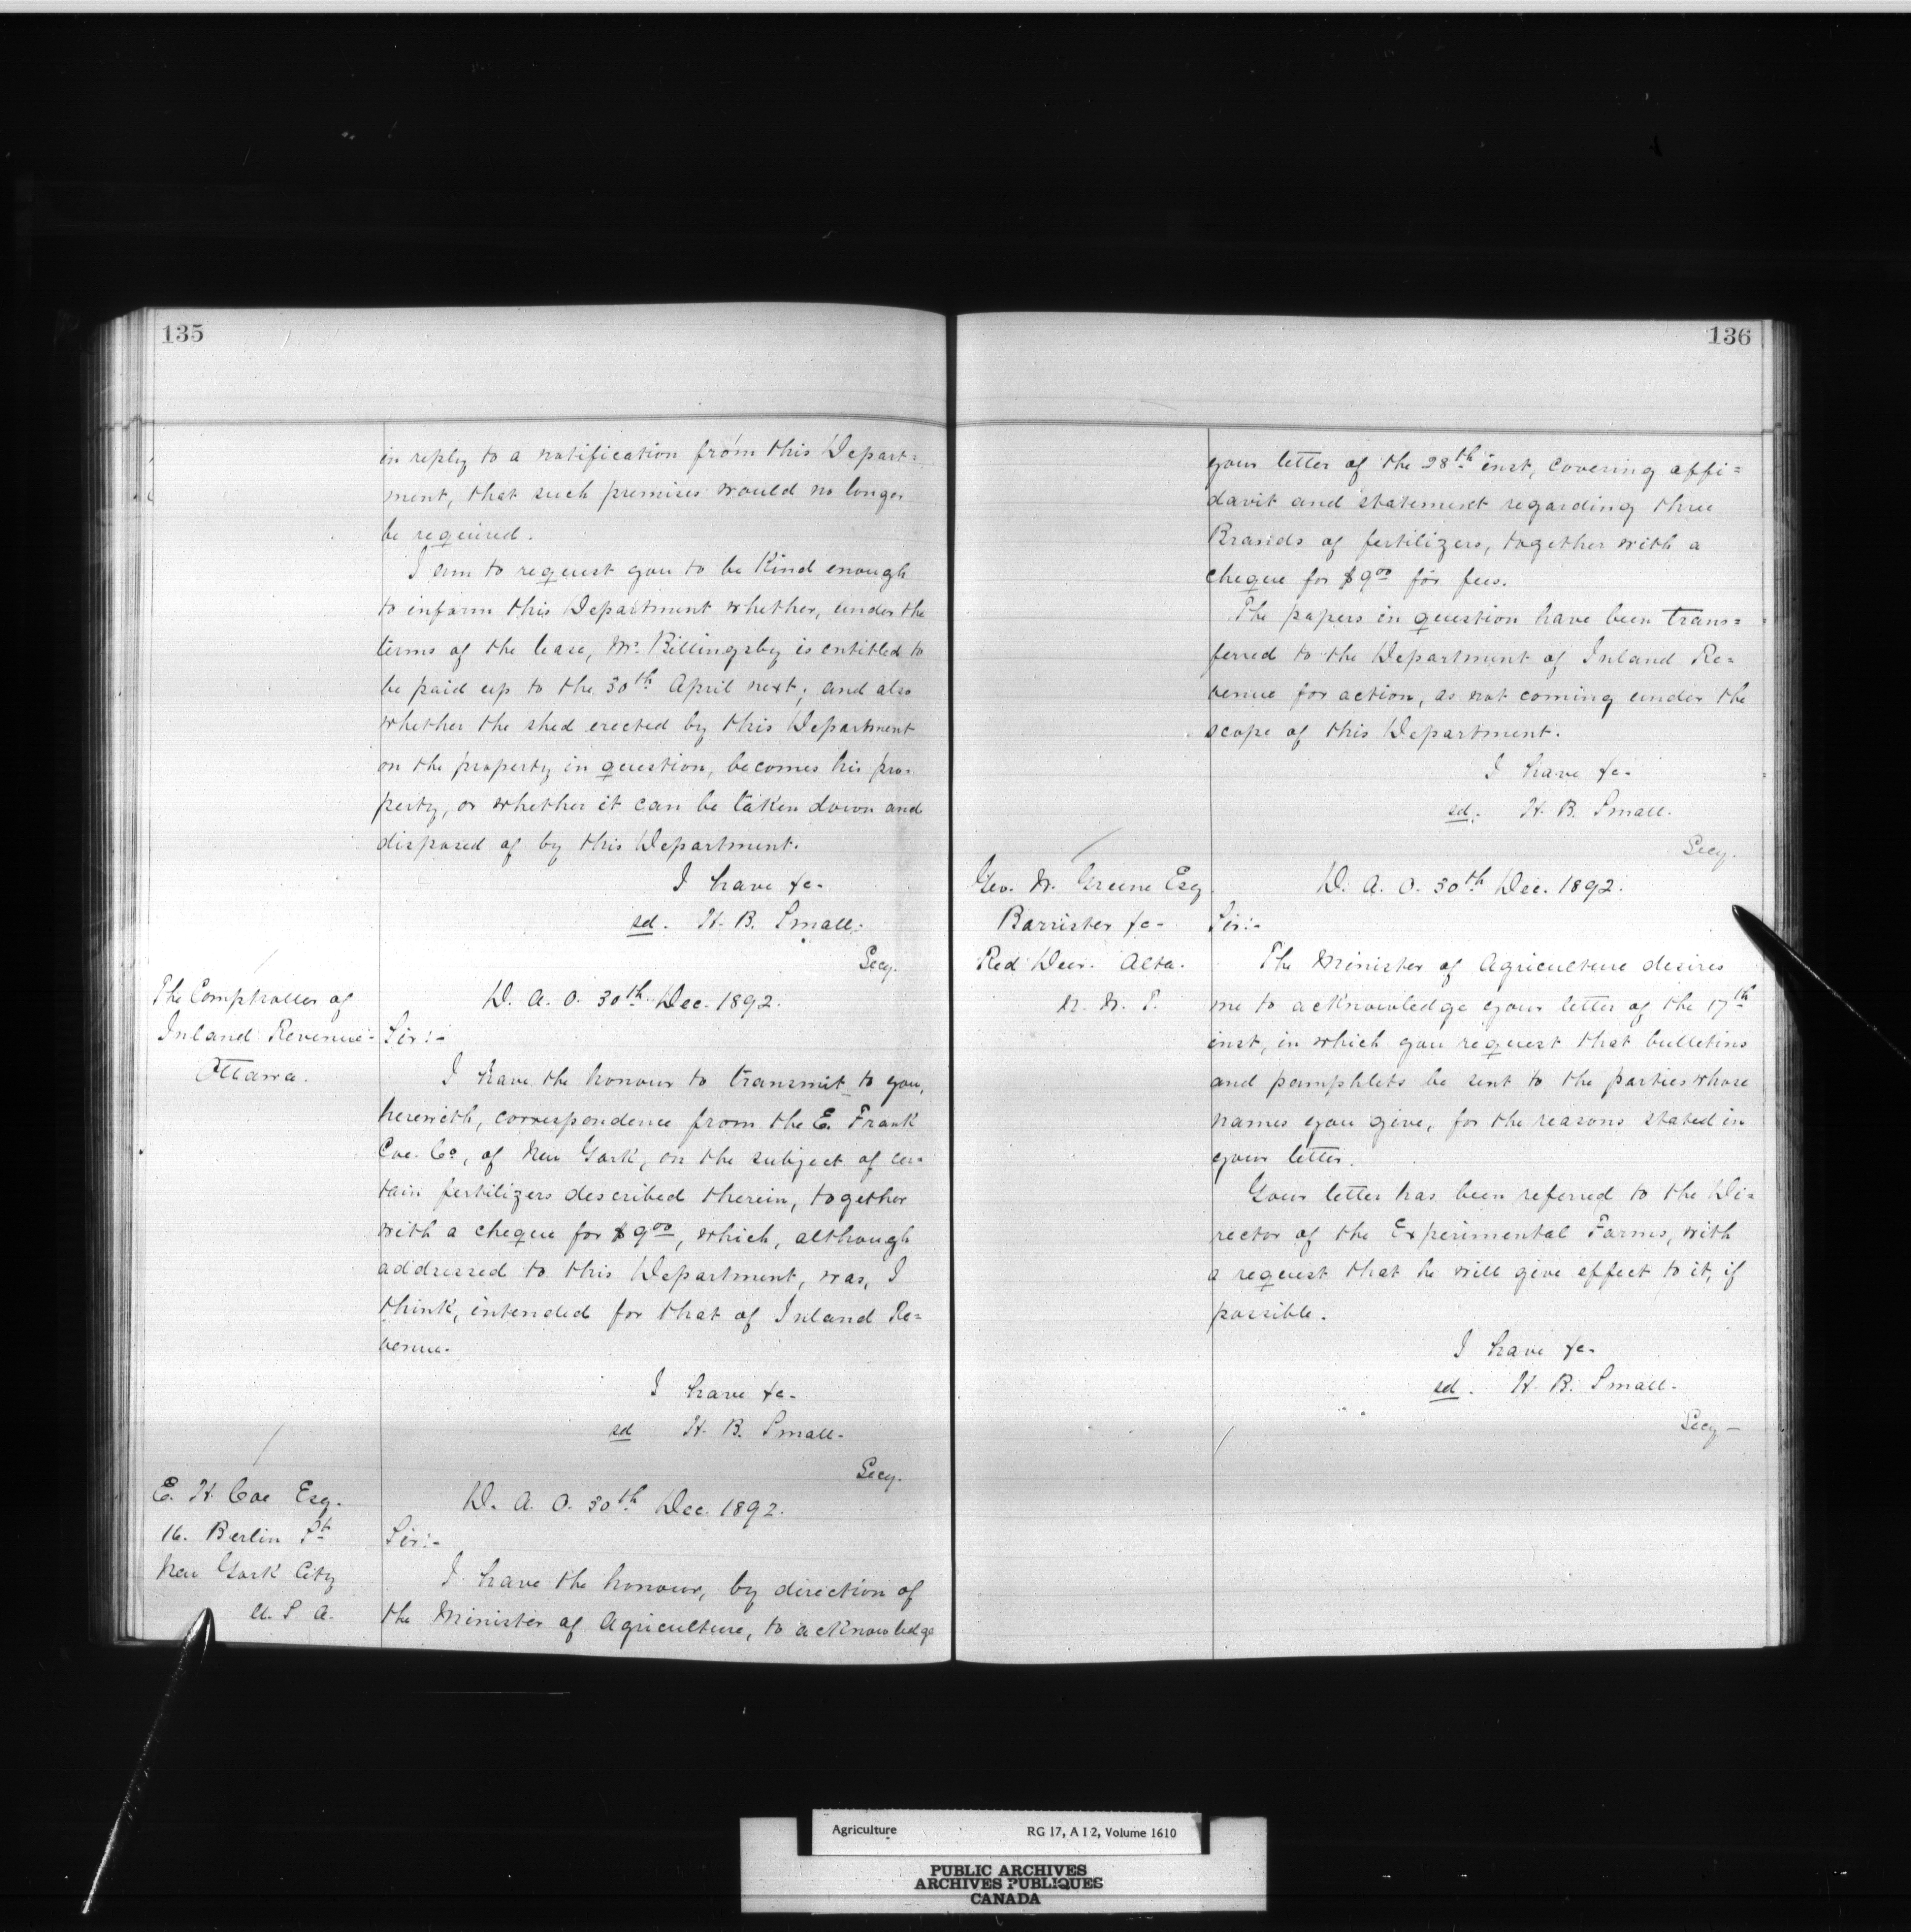 135
in reply to a notification from this Depart=
ment, that such premises would no longer
be required.
I am to request you to be Kind enough
to inform this Department whether, under the
terms of the lease, Mr. Billingsby is entitled to
be paid up to the 30th April next; and also
whether the shed erected by this Department
on the property in question, becomes his pro=
perty, or whether it can be taken down and
disposed of by this Department.
I have &c-
sd. H. B. Small.
Secy.
The Comptroller of
Inland Revenue-
Ottawa.
D. A. O. 30th Dec. 1892.
Sir:-
I have the honour to transmit to you,
herewith, correspondence from the E. Frank
Coe. Co, of New York, on the subject of cer=
tain fertilizers described therein, together
with a cheque for $9 00, which, although
addressed to this Department, was, I
think, intended for that of Inland Re=
venue.
I have &c-
sd H. B. Small-
Secy.
E. H. Coe Esq.
16. Berlin St
New York City
U. S A.
D. A. O. 30th Dec. 1892.
Sir:-
I have the honour, by direction of
the Minister of Agriculture, to acknowledge
136
your letter of the 28th inst, covering affi=
davit and statement regarding three
Brands of fertilizers, together with a
cheque for $9 00 for fees.
The papers in question have been trans=
ferred to the Department of Inland Re=
venue for action, as not coming under the
scope of this Department.
I have &c-
sd. H. B. Small.
Secy.
Geo. W. Greene Esq
Barrister &c-
Red Deer. Alta.
N. W. T.
D. A. O. 30th Dec. 1892.
Sir:-
The Minister of Agriculture desires
me to acknowledge your letter of the 17th
inst, in which you request that bulletins
and pamphlets be sent to the parties whose
names you give, for the reasons stated in
your letter.
Your letter has been referred to the Di=
rector of the Experimental Farms, with
a request that he will give effect to it, if
possible.
I have &c-
sd. H. B. Small-
Secy-
Agriculture RG 17, A I 2, Volume 1610
PUBLIC ARCHIVES
ARCHIVES PUBLIQUES
CANADA